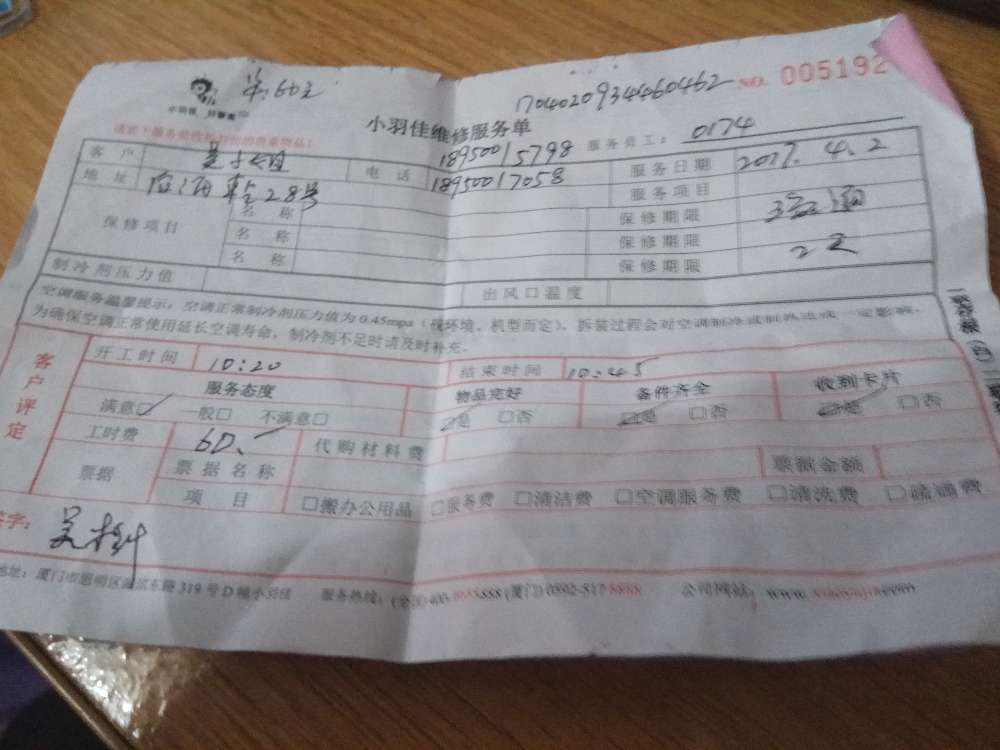 单:60元
小羽佳 好管家
17040209344460462 NO. 005192
小羽佳维修服务单
服务员工: 0174
客户 电话 18950015798 服务日期 2017.4.2
地址 28号 18950017058 服务项目
保修项目 名称 保修期限
名称 保修期限
名称 保修期限
制冷剂压力值 出风口温度
空调服务温馨提示:空调正常制冷剂压力值为0.45mpa(视环境、机型而定),拆装过程会对空调制冷或制热造成一定影响,
为确保空调正常使用延长空调寿命,制冷剂不足时请及时补充。
客户评定
开工时间 10:20 结束时间 10:45
服务态度 物品完好 备件齐全 收到卡片
满意☑ 一般□ 不满意□ ☑是 □否 ☑是 □否 ☑是 □否
工时费 60. 代购材料费
票据 票据名称 票据金额
项目 □搬办公用品 □服务费 □清洁费 □空调服务费 □清洗费 □疏通费
签字:
地址:厦门市思明区 319号D幢小羽佳 服务热线: (厦门)0592-517 8888 公司网站:www.